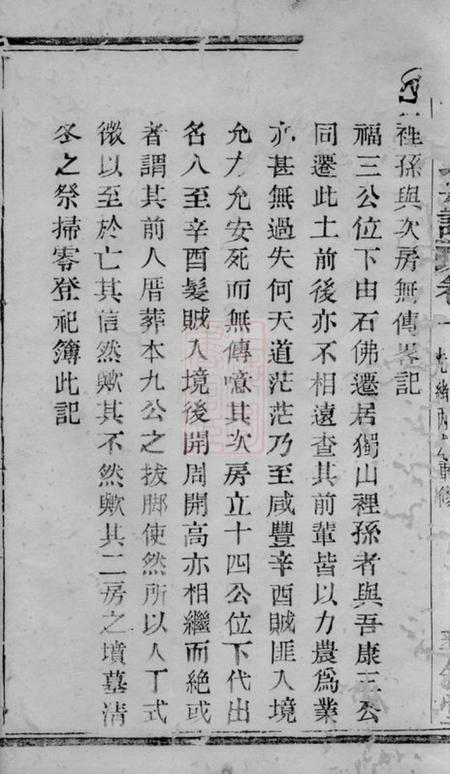 裡孫與次房無傳畧記
福三公位下由石佛遷居獨山裡孫者與吾康三公
同遷此土前後亦不相遠查其前輩皆以力農爲業
亦甚無過失何天道茫茫乃至咸豐辛酉賊匪入境
允力允安死而無傳噫其次房立十四公位下代出
名入至辛酉髮賊入境後開周開高亦相繼而絶或
者謂其前人厝葬本九公之拔脚使然所以人丁式
微以至於亡其信然歟其不然歟其二房之墳墓清
冬之祭掃零登祀簿此記